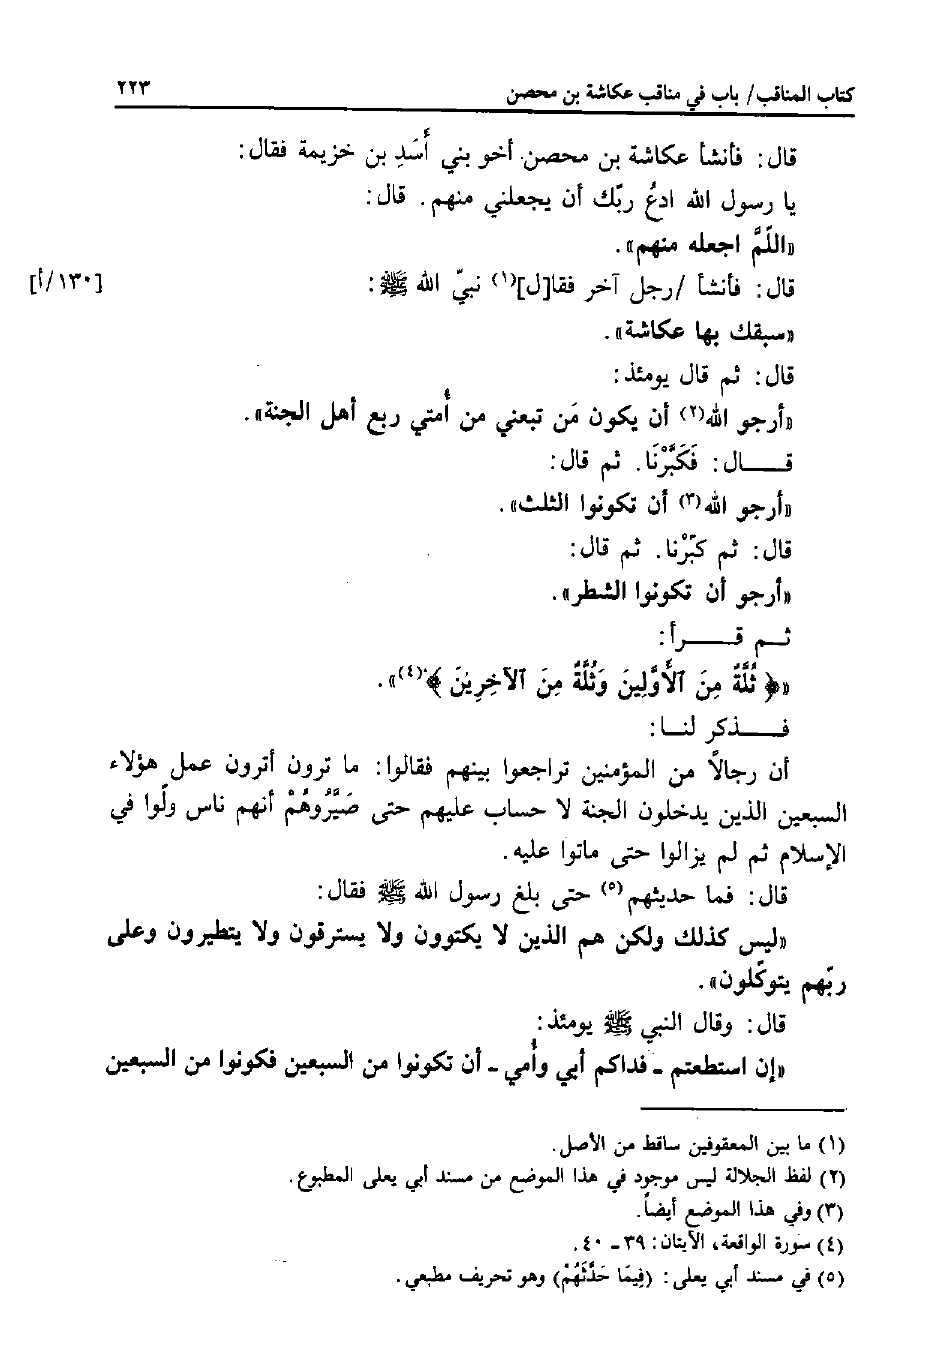 كتاب المناقب/ باب في مناقب عكاشة بن محصن ٢٢٣
قال: فأنشأ عكاشة بن محصن أخو بني أَسَدِ بن خزيمة فقال:
يا رسول الله ادعُ ربّك أن يجعلني منهم. قال:
«اللّهمَّ اجعله منهم».
قال: فأنشأ /رجل آخر فقا[ل](١) نبيّ الله ﷺ: [١٣٠/أ]
«سبقك بها عكاشة».
قال: ثم قال يومئذ:
«أرجو الله(٢) أن يكون مَن تبعني من أُمتي ربع أهل الجنة».
قـــال: فَكَبَّرْنَا. ثم قال:
«أرجو الله(٣) أن تكونوا الثلث».
قال: ثم كبّرْنا. ثم قال:
«أرجو أن تكونوا الشطر».
ثـم قـــرأ:
«﴿ ثُلَّةٌ مِنَ ٱلْأَوَّلِينَ وَثُلَّةٌ مِنَ ٱلآخِرِينَ ﴾(٤)».
فـــذكر لنـا:
أن رجالاً من المؤمنين تراجعوا بينهم فقالوا: ما ترون أترون عمل هؤلاء
السبعين الذين يدخلون الجنة لا حساب عليهم حتى صَيَّرُوهُمْ أنهم ناس ولّوا في
الإسلام ثم لم يزالوا حتى ماتوا عليه.
قال: فما حديثهم(٥) حتى بلغ رسول الله ﷺ فقال:
«ليس كذلك ولكن هم الذين لا يكتوون ولا يسترقون ولا يتطيرون وعلى
ربّهم يتوكّلون».
قال: وقال النبي ﷺ يومئذ:
«إن استطعتم ـ فداكم أبي وأُمي ـ أن تكونوا من السبعين فكونوا من السبعين
(١) ما بين المعقوفين ساقط من الأصل.
(٢) لفظ الجلالة ليس موجود في هذا الموضع من مسند أبي يعلى المطبوع.
(٣) وفي هذا الموضع أيضاً.
(٤) سورة الواقعة، الآيتان: ٣٩ ـ ٤٠.
(٥) في مسند أبي يعلى: (فِيمَا حَدَّثَهُمْ) وهو تحريف مطبعي.